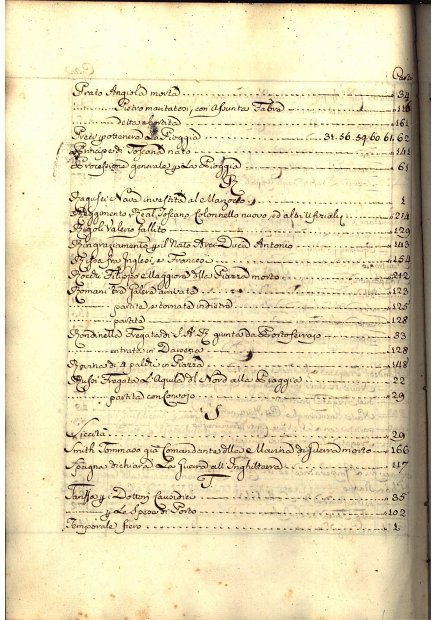 Carte
Prato Angiola morta 34
Pietro maritatosi, con Assunta Fabra 116
detta 161
Preti per ottenere La Pioggia 31. 56. 59. 60. 61. 62
Principe di Toscana nato 141
Processione generale per La Pioggia 61
R
Ragusei Nave investita al Marzocco 1
Reggimento Real Toscano Colonnello nuovo, ed altri Ufiziali 214
Rigoli Valerio fallito 129
Ringraziamento per il Nato Arciduca Antonio 143
Rissa fra Inglesi, e Francesi 154
Filippo Maggiore della Piazza morto 212
Romani tre Galere arrivate 123
partite, e tornate indietro 125
partite 128
Rondinella Fregata di S. A. R. giunta da Portoferraio 33
entrata in Darsena 128
Rovina di 4 palchi in Piazza 148
Russi Fregata L'Aquila del Nord alla Spiaggia 22
partita con Convojo 29
S
Siccità 29
Smith Tommaso già Comandante della Marina di Guerra morto 166
Spagna dichiara La Guerra all'Inghilterra 117
T
Tariffa per i Dottori Causidici 35
per Le Spese di Porto 102
Temporale fiero 1